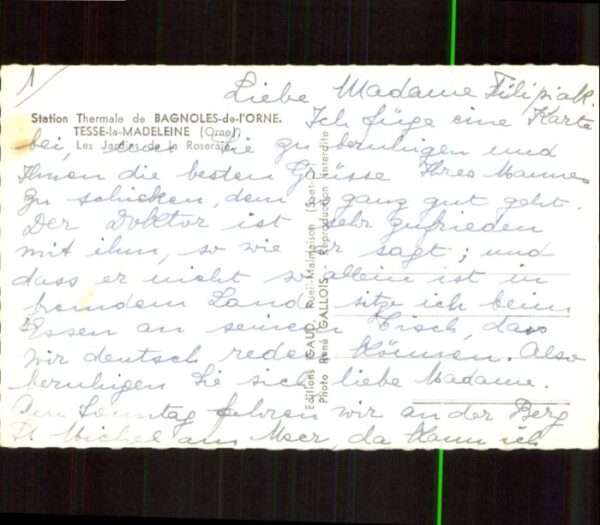 1
Liebe Madame Filipiak.
Station Thermale de BAGNOLES-de-l'ORNE.
TESSE-la-MADELEINE (Orne)
Les Jardins de la Roseraie
Ich füge eine Karte
bei, um Sie zu beruhigen und
Ihnen die besten Grüsse Ihres Mannes
zu schicken, dem es ganz gut geht.
Der Doktor ist sehr zufrieden
mit ihm, so wie er sagt; und
dass er nicht so allein ist in
fremdem Land, sitze ich beim
Essen an seinem Tisch, das
wir deutsch reden können. Also
beruhigen Sie sich, liebe Madame.
Am Sonntag fahren wir an der Berg
St Michel am Meer, da kann ich
Editions GAUD, Rueil-Malmaison
Photo René GALLOIS - Reproduction interdite